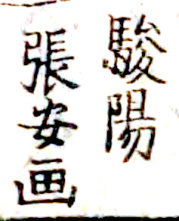 駿陽
張安画